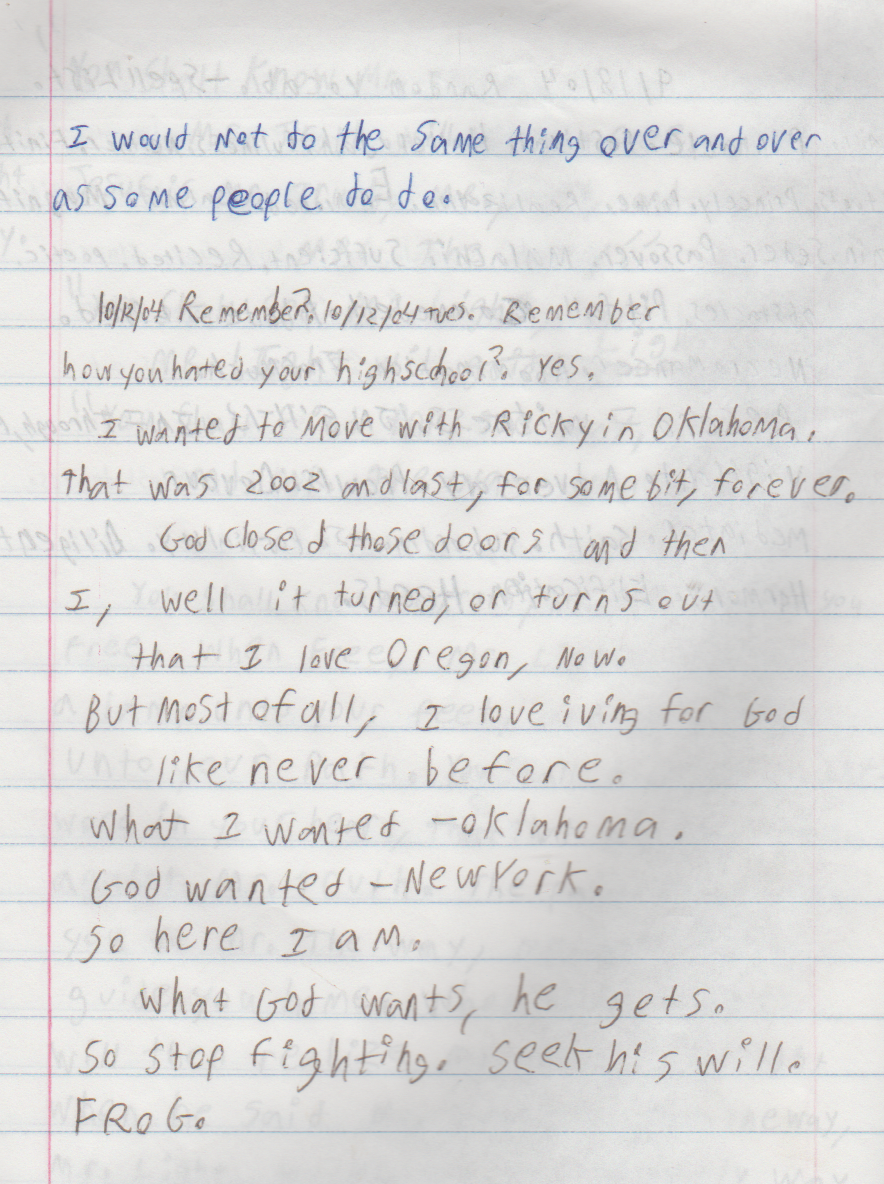 I would not to the same thing over and over
as some people to do.
10/12/04 Remember?. 10/12/04 tues. Remember
how you hated your highschool?. Yes.
I wanted to move with Ricky in Oklahoma.
That was 2002 and last, for some bit, forever.
God closed those doors and then
I, well it turned, or turns out
that I love Oregon, Now.
But most of all, I love iving for God
like never before.
What I wanted - Oklahoma.
God wanted - New York.
So here I am.
What God wants, he gets.
So stop fighting. Seek his will.
FROG.